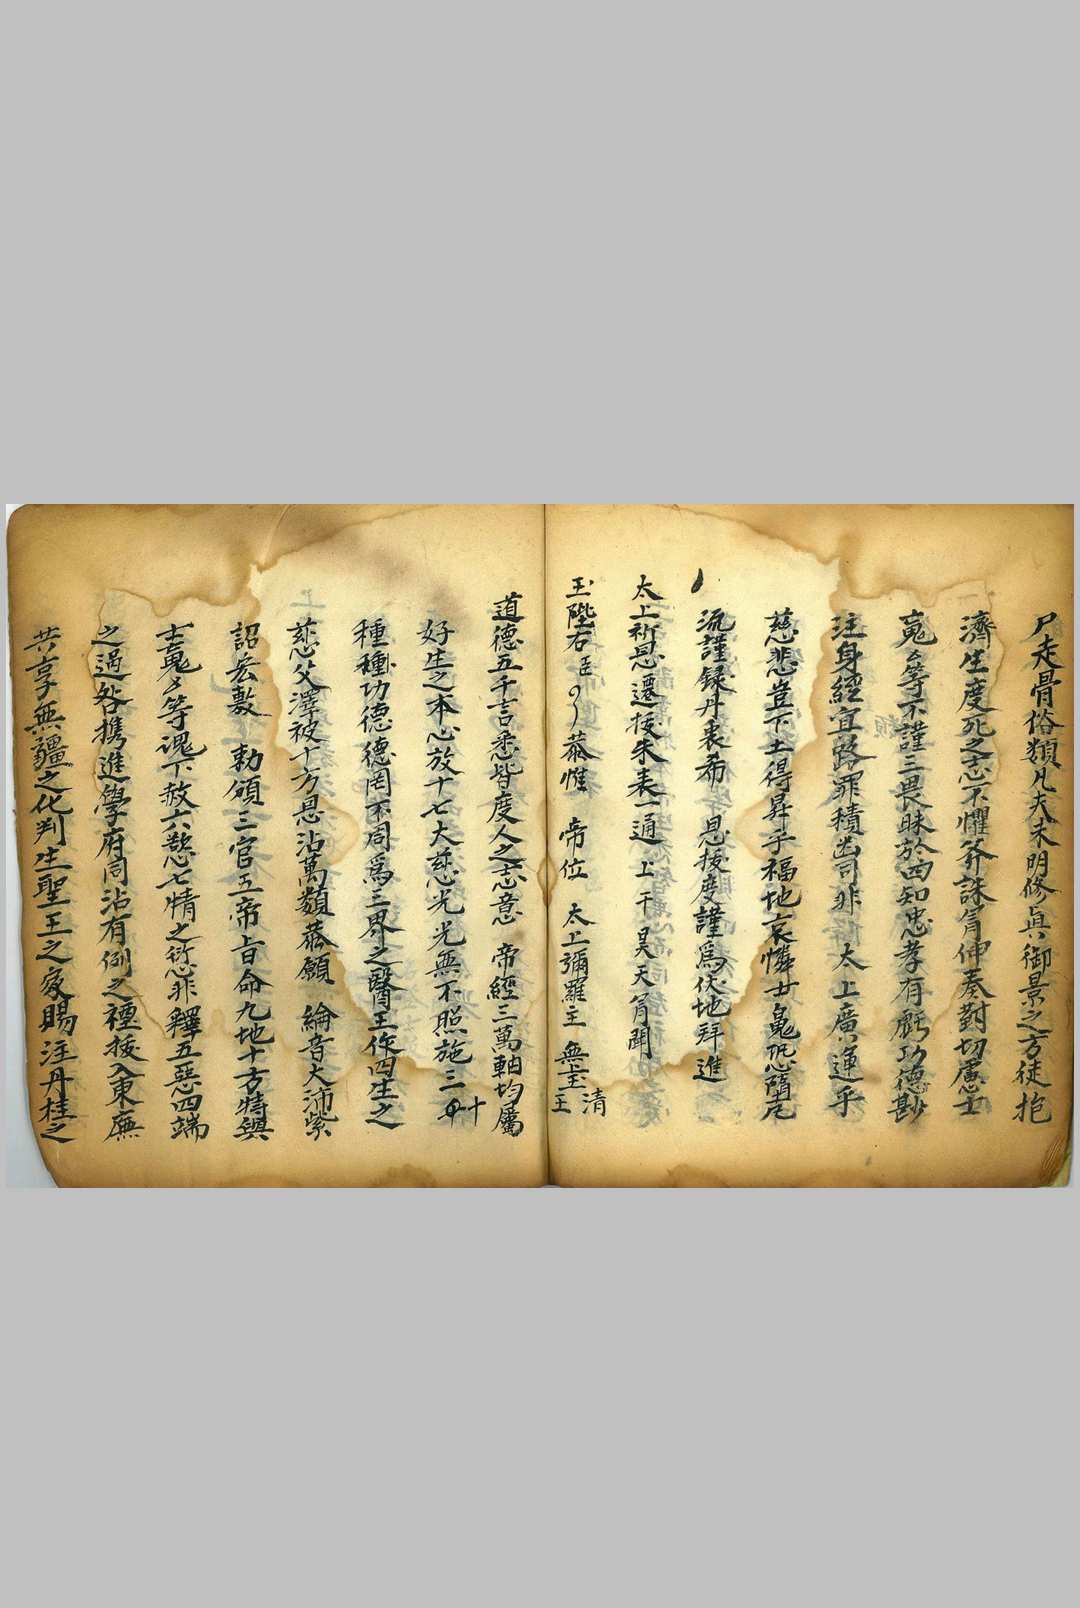 尸走骨俗類凡夫未明修眞御景之方徒抱
濟生度死之志不懼斧誅肯伸奏對切慮亡
䰟〻等不謹三畏昧於四知忠孝有虧功德尠
注身經宜路罪積幽司非　太上廣運乎
慈悲豈下土得昇乎福地哀憐亡䰟恐墮尾
流謹録丹表希　恩拔度謹爲伏地拜進
太上祈恩遷拔朱表一通　上干昊天肯聞
玉陛右臣　恭惟　帝位　太上彌羅主　無上玉清王
道德五千言悉皆度人之志意　帝經三萬軸均屬
好生之本心放十七大慈光光無不照施三十
種種功德德罔不周爲三界之醫王作四生之
慈父澤被十方恩沾萬類恭願　綸音大沛紫
詔宏敷　勅頒三官五帝旨命九地十方特與
亡䰟〻等魂下赦六慾七情之愆非釋五惡四端
之過咎携進學府同沾有例之禋接入東廡
共享無疆之化判生聖王之家賜注丹桂之